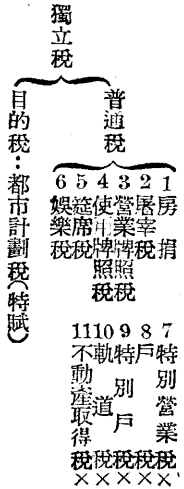 獨立稅
普通稅
1房捐
2屠宰稅
3營業牌照稅
4使用牌照稅
5筵席稅
6娛樂稅
7特別營業稅×
8戶稅×
9特別戶稅×
10軌道稅×
11不動產取得稅×
目的稅：都市計劃稅（特賦）